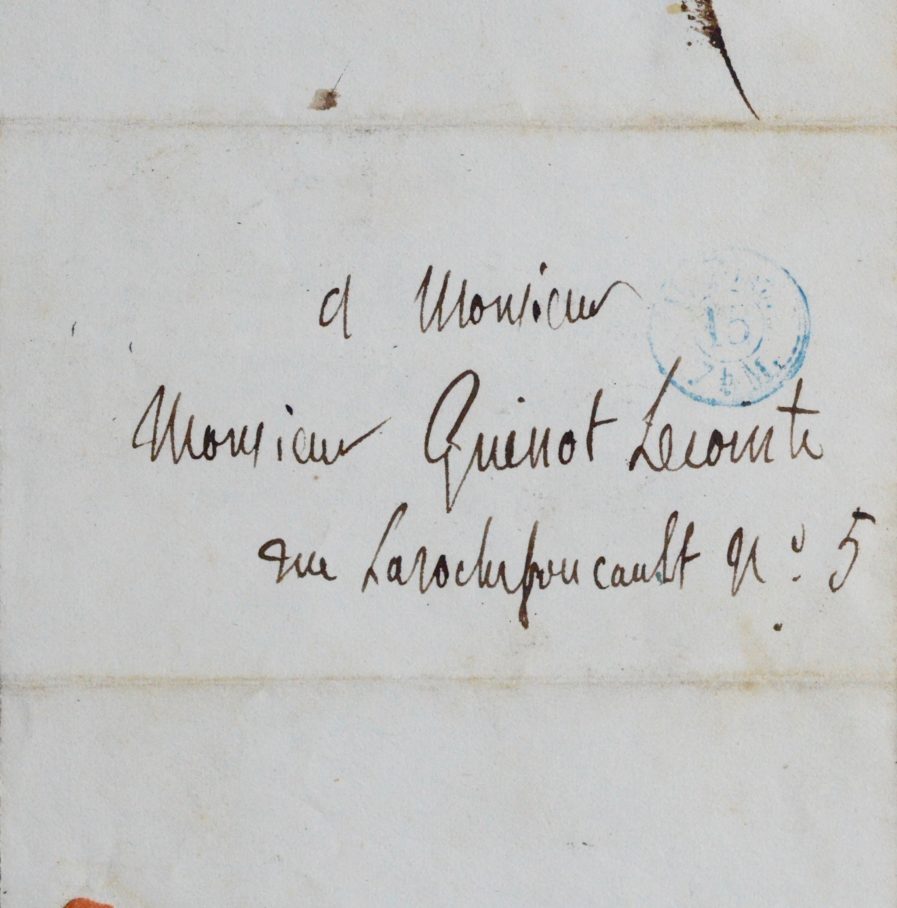 A Monsieur
Monsieur Guenot Lecomte
rue Larochefoucault N.º 5
15